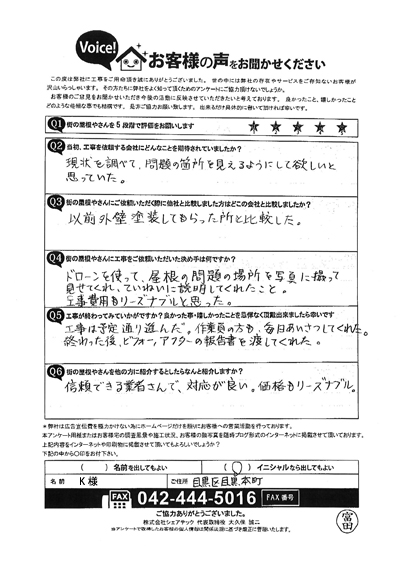 Voice!
お客様の声をお聞かせください
この度は弊社に工事をご用命頂き誠にありがとうございました。世の中には弊社の存在やサービスをご存知ないお客様が
沢山いらっしゃいます。その方たちに弊社をよく知って頂くためのアンケートにご協力頂けないでしょうか。
お客様のご意見をお聞かせいただき今後の活動に反映させていただきたいと考えております。良かったこと、嬉しかったこと
どのような些細な事でも結構です。是非ご協力お願い致します。出来るだけ具体的に書いて頂ければ幸いです。
Q1 街の屋根やさんを5段階で評価をお願いします ★ ★ ★ ★ ★
Q2 当初、工事を依頼する会社にどんなことを期待されていましたか?
現状を調べて、問題の箇所を見えるようにして欲しいと
思っていた。
Q3 街の屋根やさんにご依頼いただく際に他社と比較しました方はどこの会社と比較しましたか?
以前外壁塗装してもらった所と比較した。
Q4 街の屋根やさんに工事をご依頼いただいた決め手は何ですか?
ドローンを使って、屋根の問題の場所を写真に撮って
見せてくれ、ていねいに説明してくれたこと。
工事費用もリーズナブルと思った。
Q5 工事が終わってみていかがですか?良かった事・嬉しかったことを忌憚なく頂戴出来ましたら幸いです
工事は予定通り進んだ。作業員の方も、毎日あいさつしてくれた。
終わった後、ビフォー、アフターの報告書を渡してくれた。
Q6 街の屋根やさんを他の方に紹介するとしたらなんと紹介しますか?
信頼できる業者さんで、対応が良い。価格もリーズナブル。
＊弊社は広告宣伝費を極力かけない為にホームページだけを頼りにお客様への営業活動を行っております。
本アンケート用紙またはお客様宅の調査風景や施工状況、お客様の顔写真を随時ブログ形式のインターネットに掲載させて頂いております。
上記内容をインターネットや印刷物に掲載させて頂いてもよろしいでしょうか?
下記の中から○印をお付け下さい。
( ) 名前を出してもよい ( ○ ) イニシャルなら出してもよい
名前 K様 ご住所 目黒区目黒本町
FAX 042-444-5016 FAX番号
ご協力ありがとうございました。
株式会社シェアテック 代表取締役 大久保 誠二
※アンケートで取得したお客様の個人情報は関係法規に基づき厳正に管理いたします。
富田